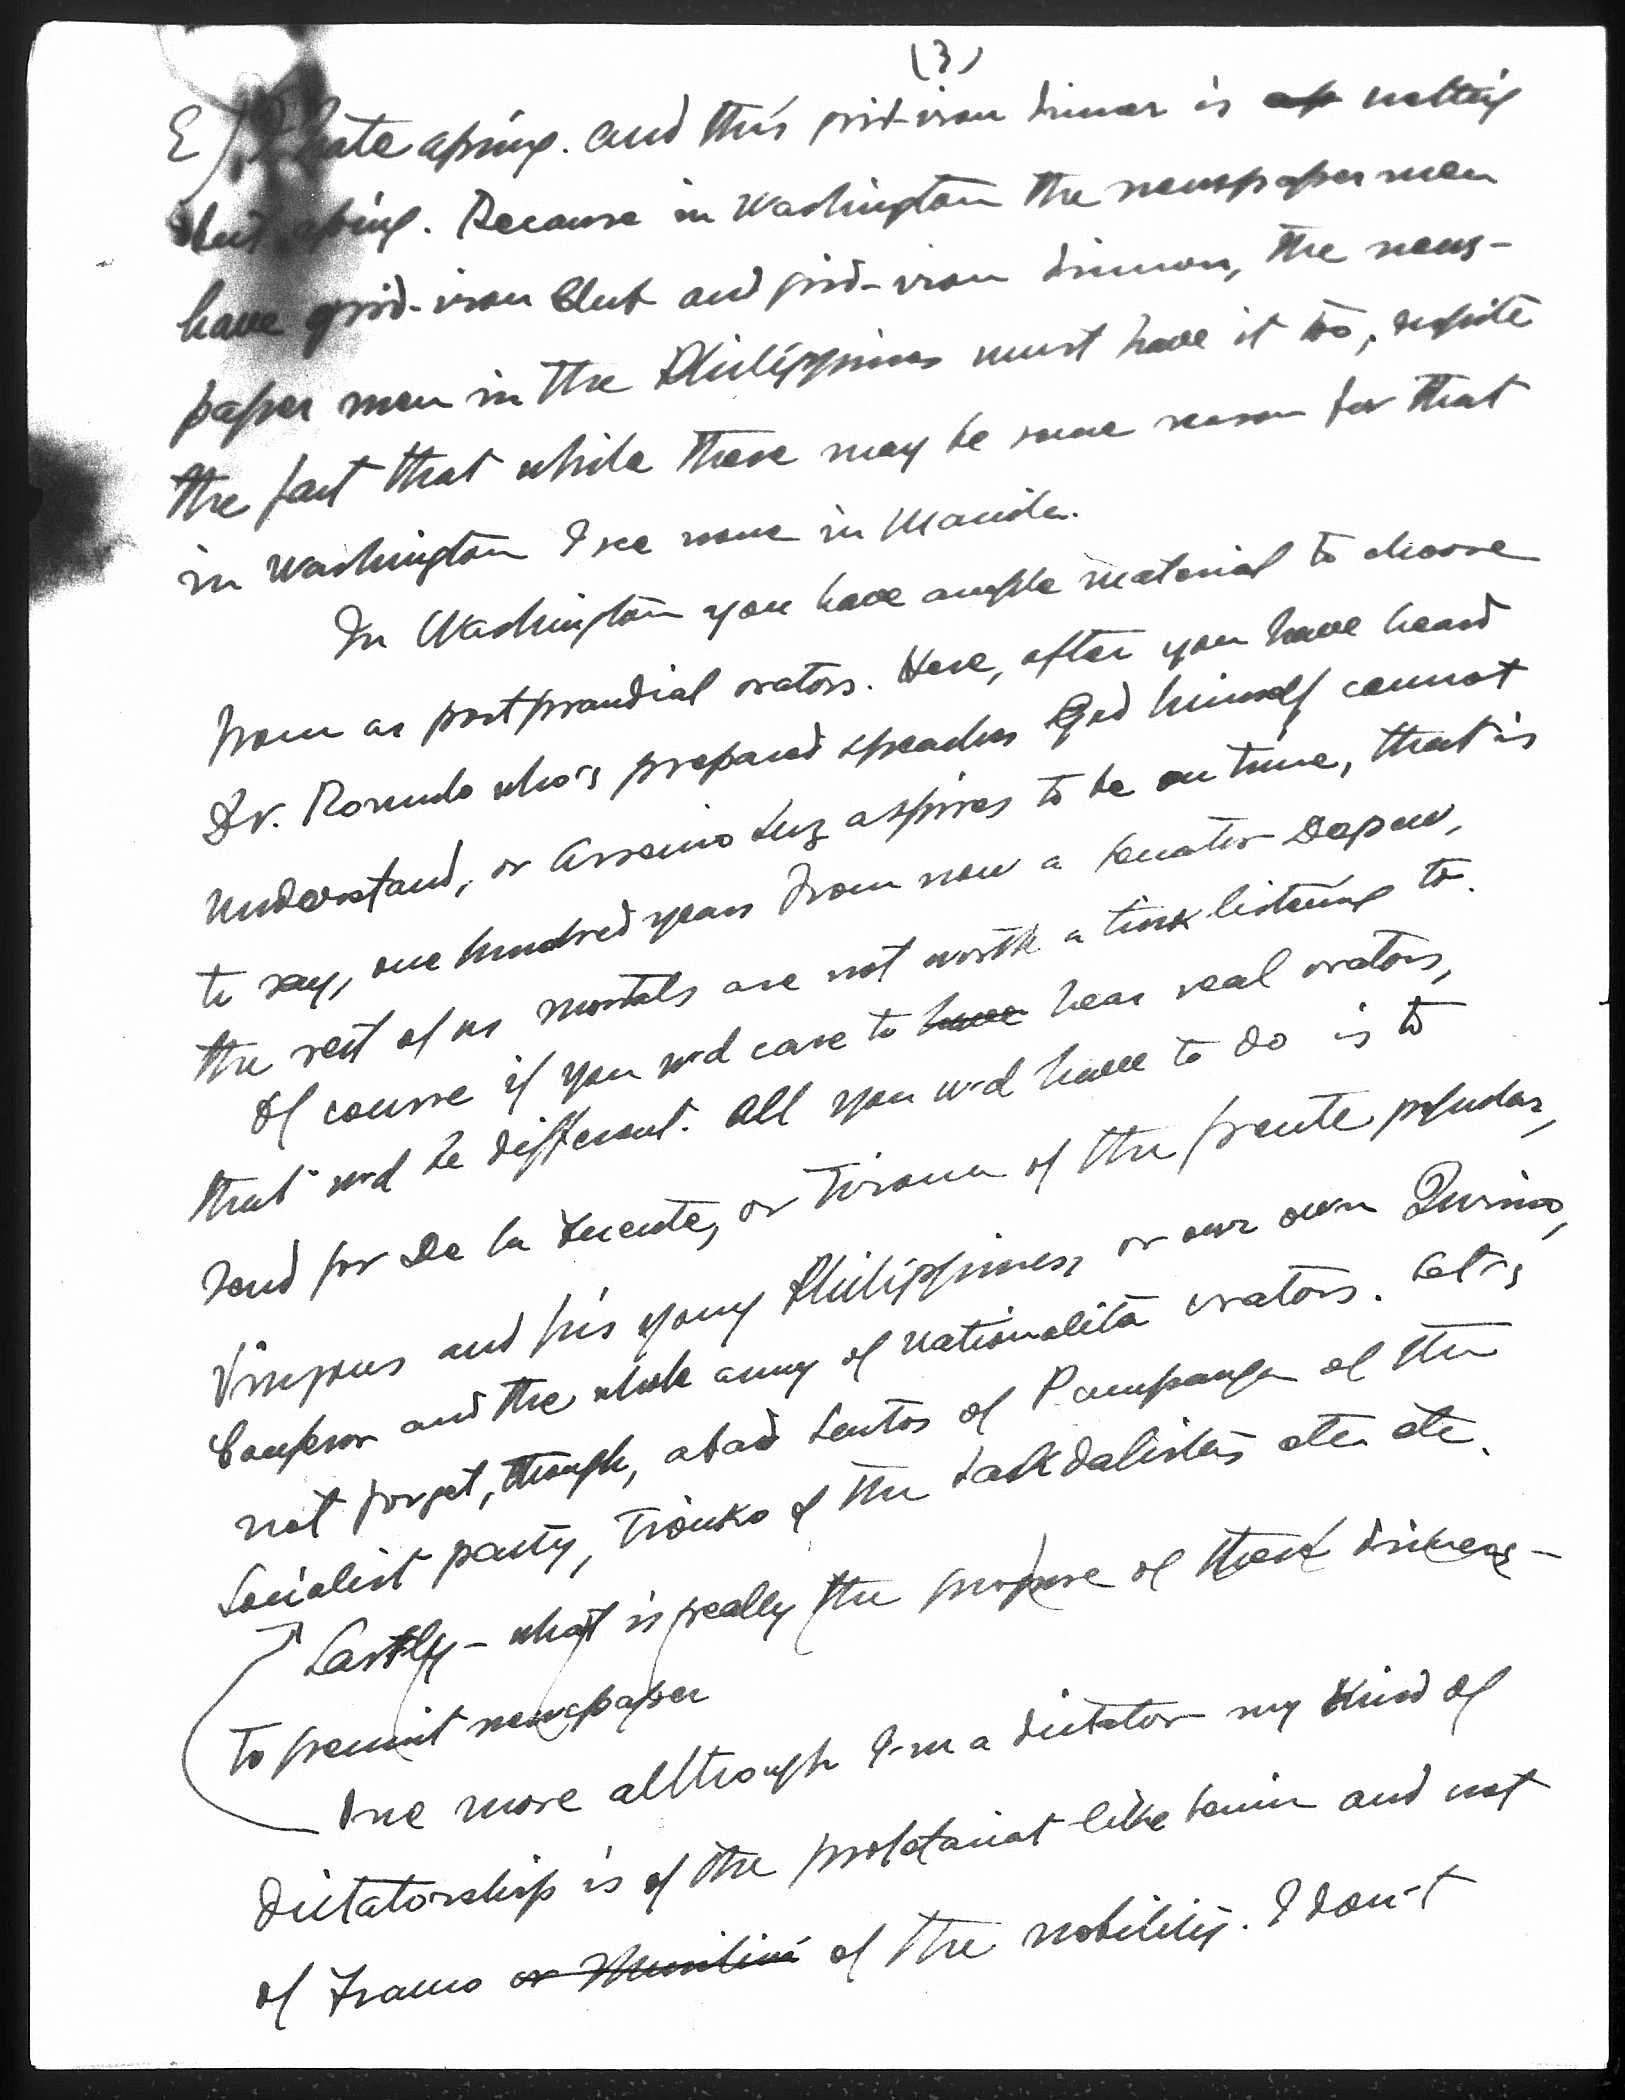 (3)
E) I hate aping. And this grid-iron dinner is ap nothing
but aping. Because in Washington the newspaper men
have grid-iron Club and grid-iron dinners, the news-
paper men in the Philippines must have it too, despite
the fact that while there may be some reason for that
in Washington I see none in Manila.
In Washington you have ample material to choose
from as postprandial orators. Here, after you have heard
Dr. Romulo who's prepared speeches God himself cannot
understand, or Arsenio Luz aspires to be on time, that is
to say, one hundred years from now a Senator Depew,
the rest of us mortals are not worth a listening to.
Of course if you w'd care to have hear real orators,
that w'd be different. All you w'd have to do is to
send for De la Fuente, or Tirona of the frente popular,
Vinzons and his young Philippines, or our own Quirino,
and the whole army of nationalista orators. Let's
not forget, though, Abad Santos of Pampanga of the
Socialist party, of the Sakdalistas etc etc.
Lastly - what is really the purpose of these dinners -
To permit newspaper
One more although I'm a dictator my kind of
dictatorship is of the proletariat like Lenin and not
of Franco or Mussolini of the nobility. I don't